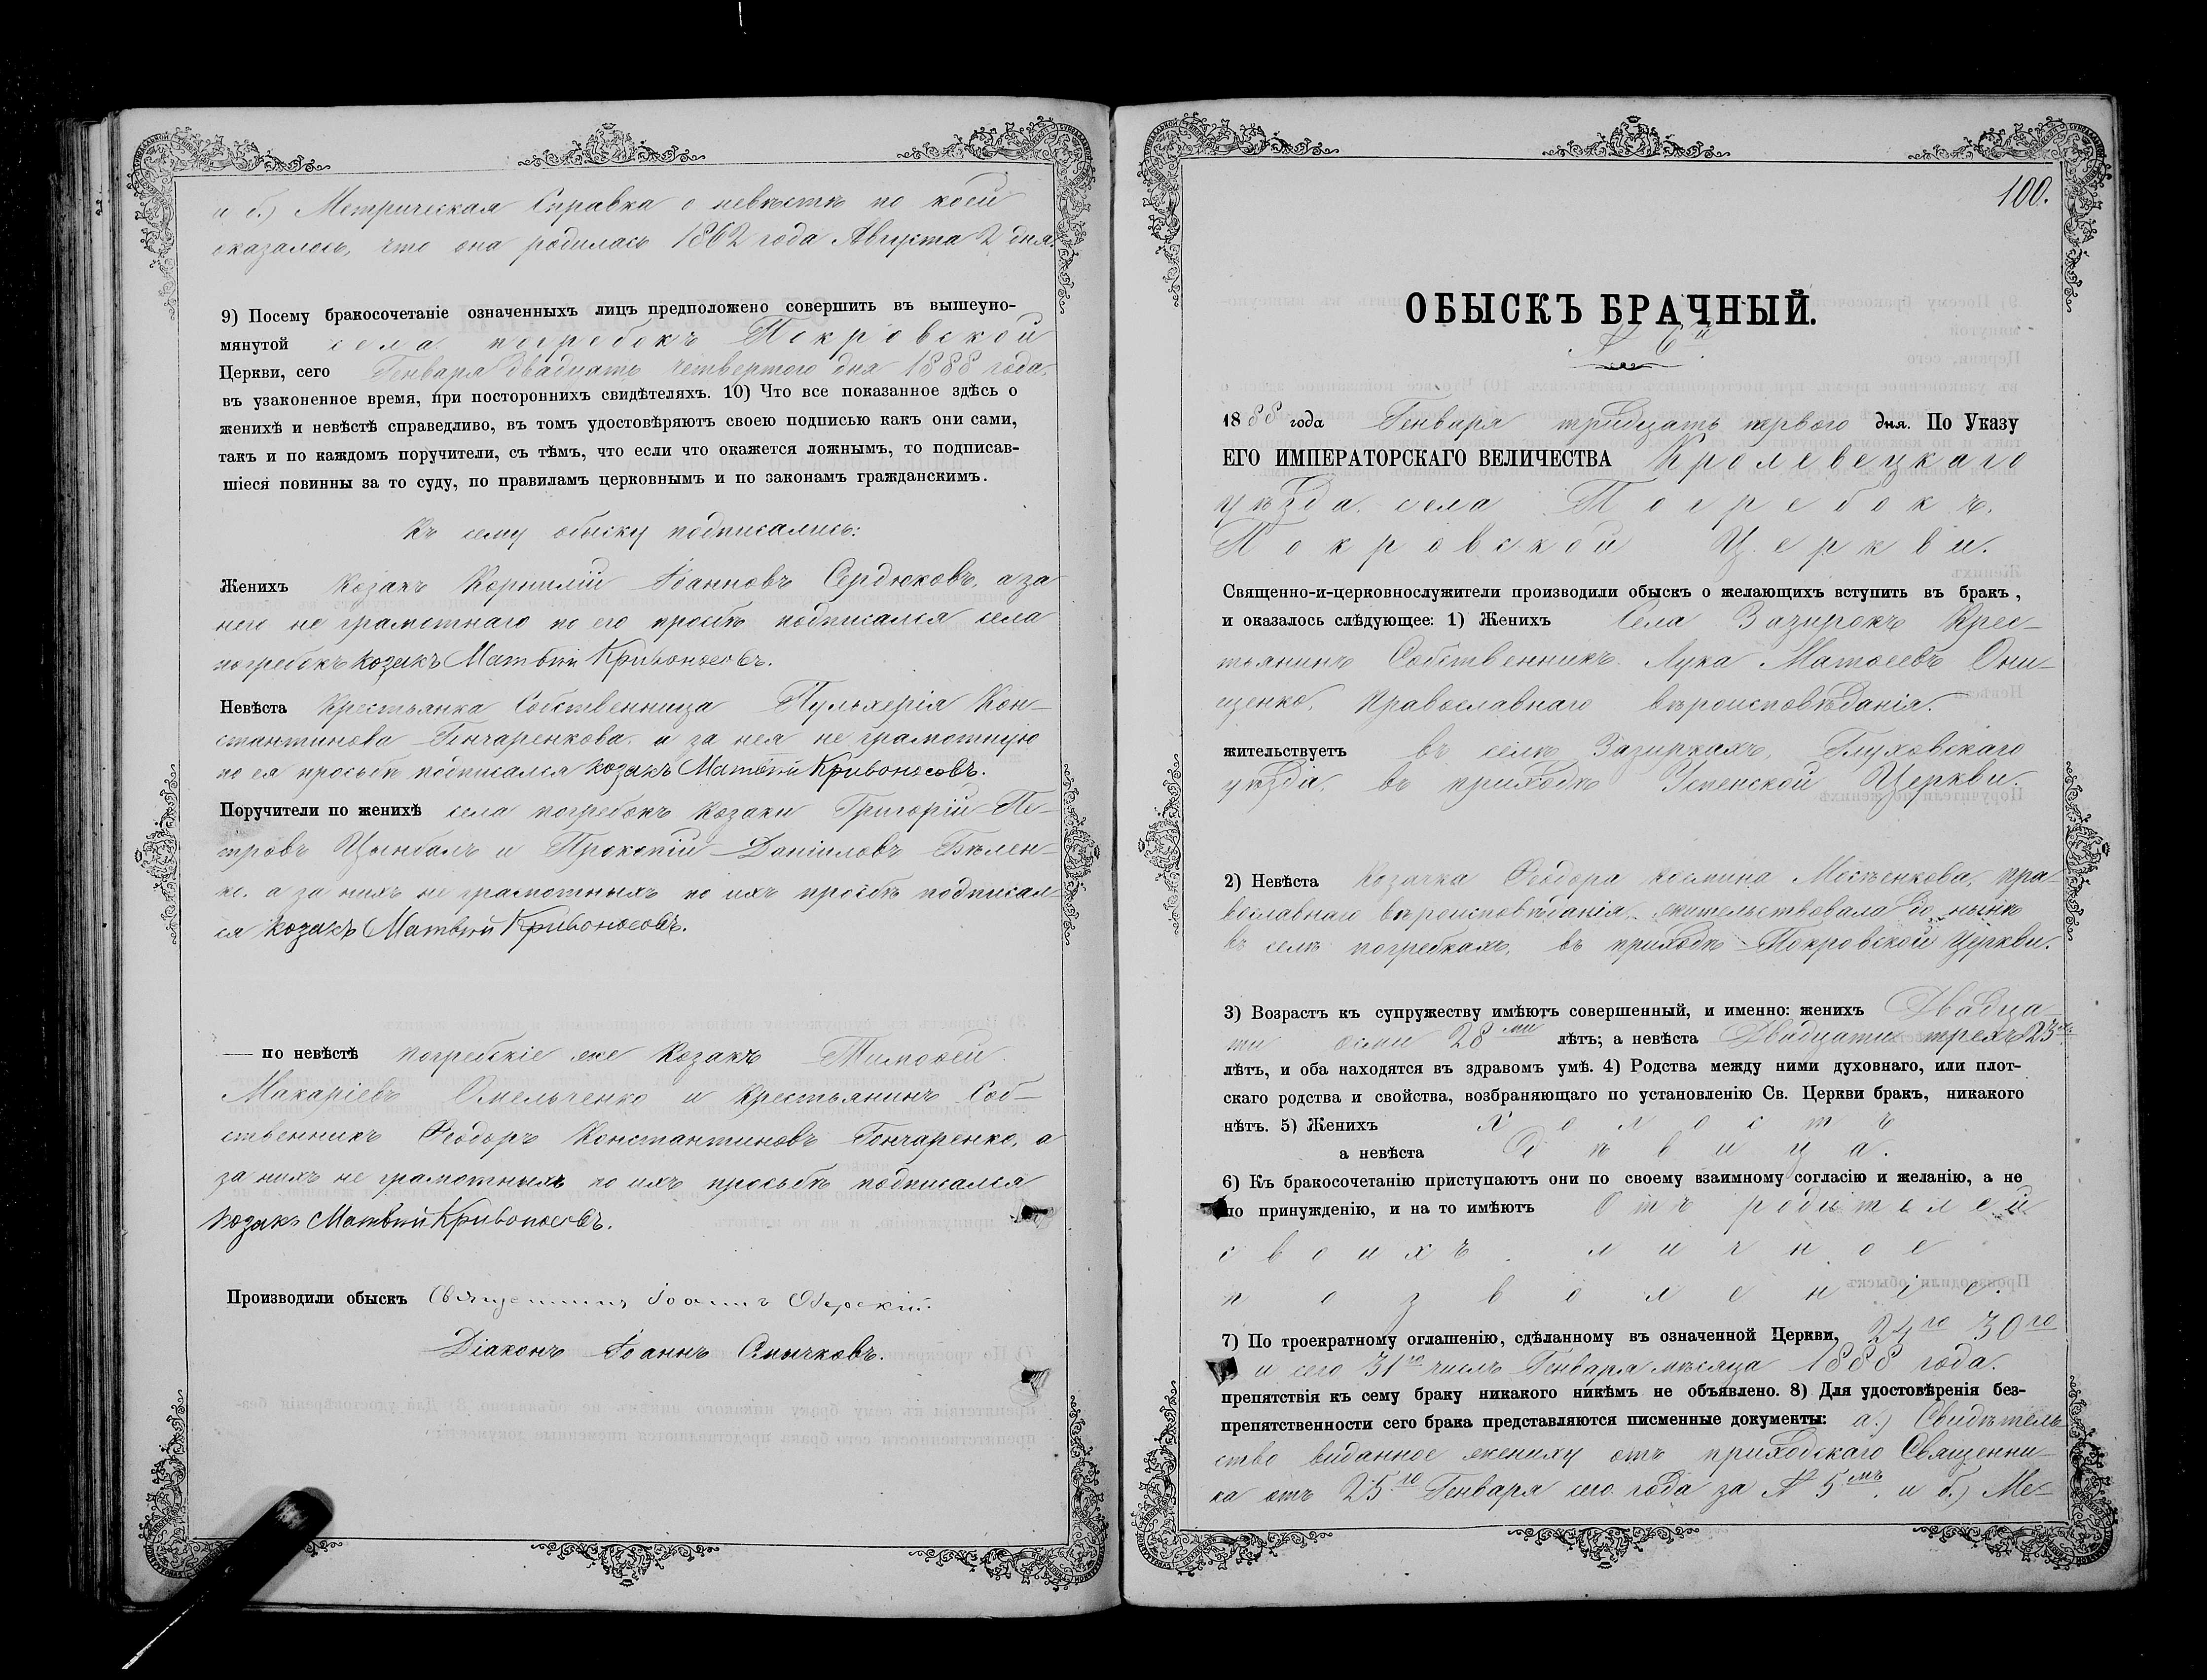 и б.) Метрическая Справка о невѣстѣ по коей
оказалось, что она родилась 1862 года Августа 2 дня.
9) Посему бракосочетаніе означенныхъ лицъ предположено совершить въ вышеупо-
мянутой села погребокъ Покровской
Церкви, сего Генваря двадцать четвертого дня 1888 года.
въ узаконенное время, при постороннихъ свидѣтеляхъ. 10) Что все показанное здѣсь о
женихѣ и невѣстѣ справедливо, въ томъ удостовѣряютъ своею подписью какъ они сами,
такъ и по каждомъ поручители, съ тѣмъ, что если что окажется ложнымъ, то подписав-
шіеся повинны за то суду, по правиламъ церковнымъ и по законамъ гражданскимъ.
Къ сему обыску подписались:
Женихъ Козакъ Корнилій Іоанновъ Сердюковъ, а за
него не грамотнаго по его просьбѣ подписался села
погребокъ козакъ Матвѣй Кривоносовъ.
Невѣста Крестьянка Собственница Пульхерія Кон-
стантинова Гончаренкова, а за нея не грамотную
по ея просьбѣ подписался козакъ Матвѣй Кривоносовъ.
Поручители по женихѣ села погребокъ козаки Григорій Пе-
тровъ Цымбалъ и Прокопій Даніиловъ Бѣлен-
ко. а за нихъ не грамотныхъ по ихъ просьбѣ подписал-
ся козакъ Матвѣй Кривоносовъ.
— по невѣстѣ погребскіе же Козакъ Тимофей
Макаріевъ Омельченко и крестьянинъ Соб-
ственникъ Феодоръ Константиновъ Гончаренко, а
за нихъ не грамотныхъ по ихъ просьбѣ подписался
козакъ Матвѣй Кривоносовъ.
Производили обыскъ Священникъ Іоаннъ
Діаконъ Іоаннъ Смычковъ.
100.
ОБЫСКЪ БРАЧНЫЙ.
№ 6й
1888 года Генваря тридцать первого дня. По Указу
ЕГО ИМПЕРАТОРСКАГО ВЕЛИЧЕСТВА Кролевецкаго
уѣзда села Погребокъ.
Покровской Церкви.
Священно-и-церковнослужители производили обыскъ о желающихъ вступить въ бракъ,
и оказалось слѣдующее: 1) Женихъ Села Зазирокъ Крес-
тьянинъ Собственникъ Лука Матфеевъ Они-
щенко, Православнаго вѣроисповѣданія.
жительствуетъ въ селѣ Зазиркахъ, Глуховскаго
уѣзда, въ приходѣ Успенской Церкви.
2) Невѣста Козачка Феодора Космина Мосѣенкова, пра-
вославнаго вѣроисповѣданія, жительствовала до нынѣ
въ селѣ погребкахъ, въ приходѣ Покровской Церкви.
3) Возрастъ къ супружеству имѣютъ совершенный, и именно: женихъ Двадца-
ти осми 28ми лѣтъ; а невѣста Двадцати трехъ 23хъ
лѣтъ, и оба находятся въ здравомъ умѣ. 4) Родства между ними духовнаго, или плот-
скаго родства и свойства, возбраняющаго по установленію Св. Церкви бракъ, никакого
нѣтъ. 5) Женихъ холостъ
а невѣста дѣвица.
6) Къ бракосочетанію приступаютъ они по своему взаимному согласію и желанію, а не
по принужденію, и на то имѣютъ Отъ родителей
своихъ личное
позволеніе.
7) По троекратному оглашенію, сдѣланному въ означенной Церкви, 24го 30го
и сего 31го числъ Генваря мѣсяца 1888 года.
препятствія къ сему браку никакого никѣмъ не объявлено. 8) Для удостовѣренія без-
препятственности сего брака представляются писменные документы: а.) Свидѣтель-
ство виданное жениху отъ приходскаго Священни-
ка отъ 25го Генваря сего года за № 5мъ. и б.) Ме-